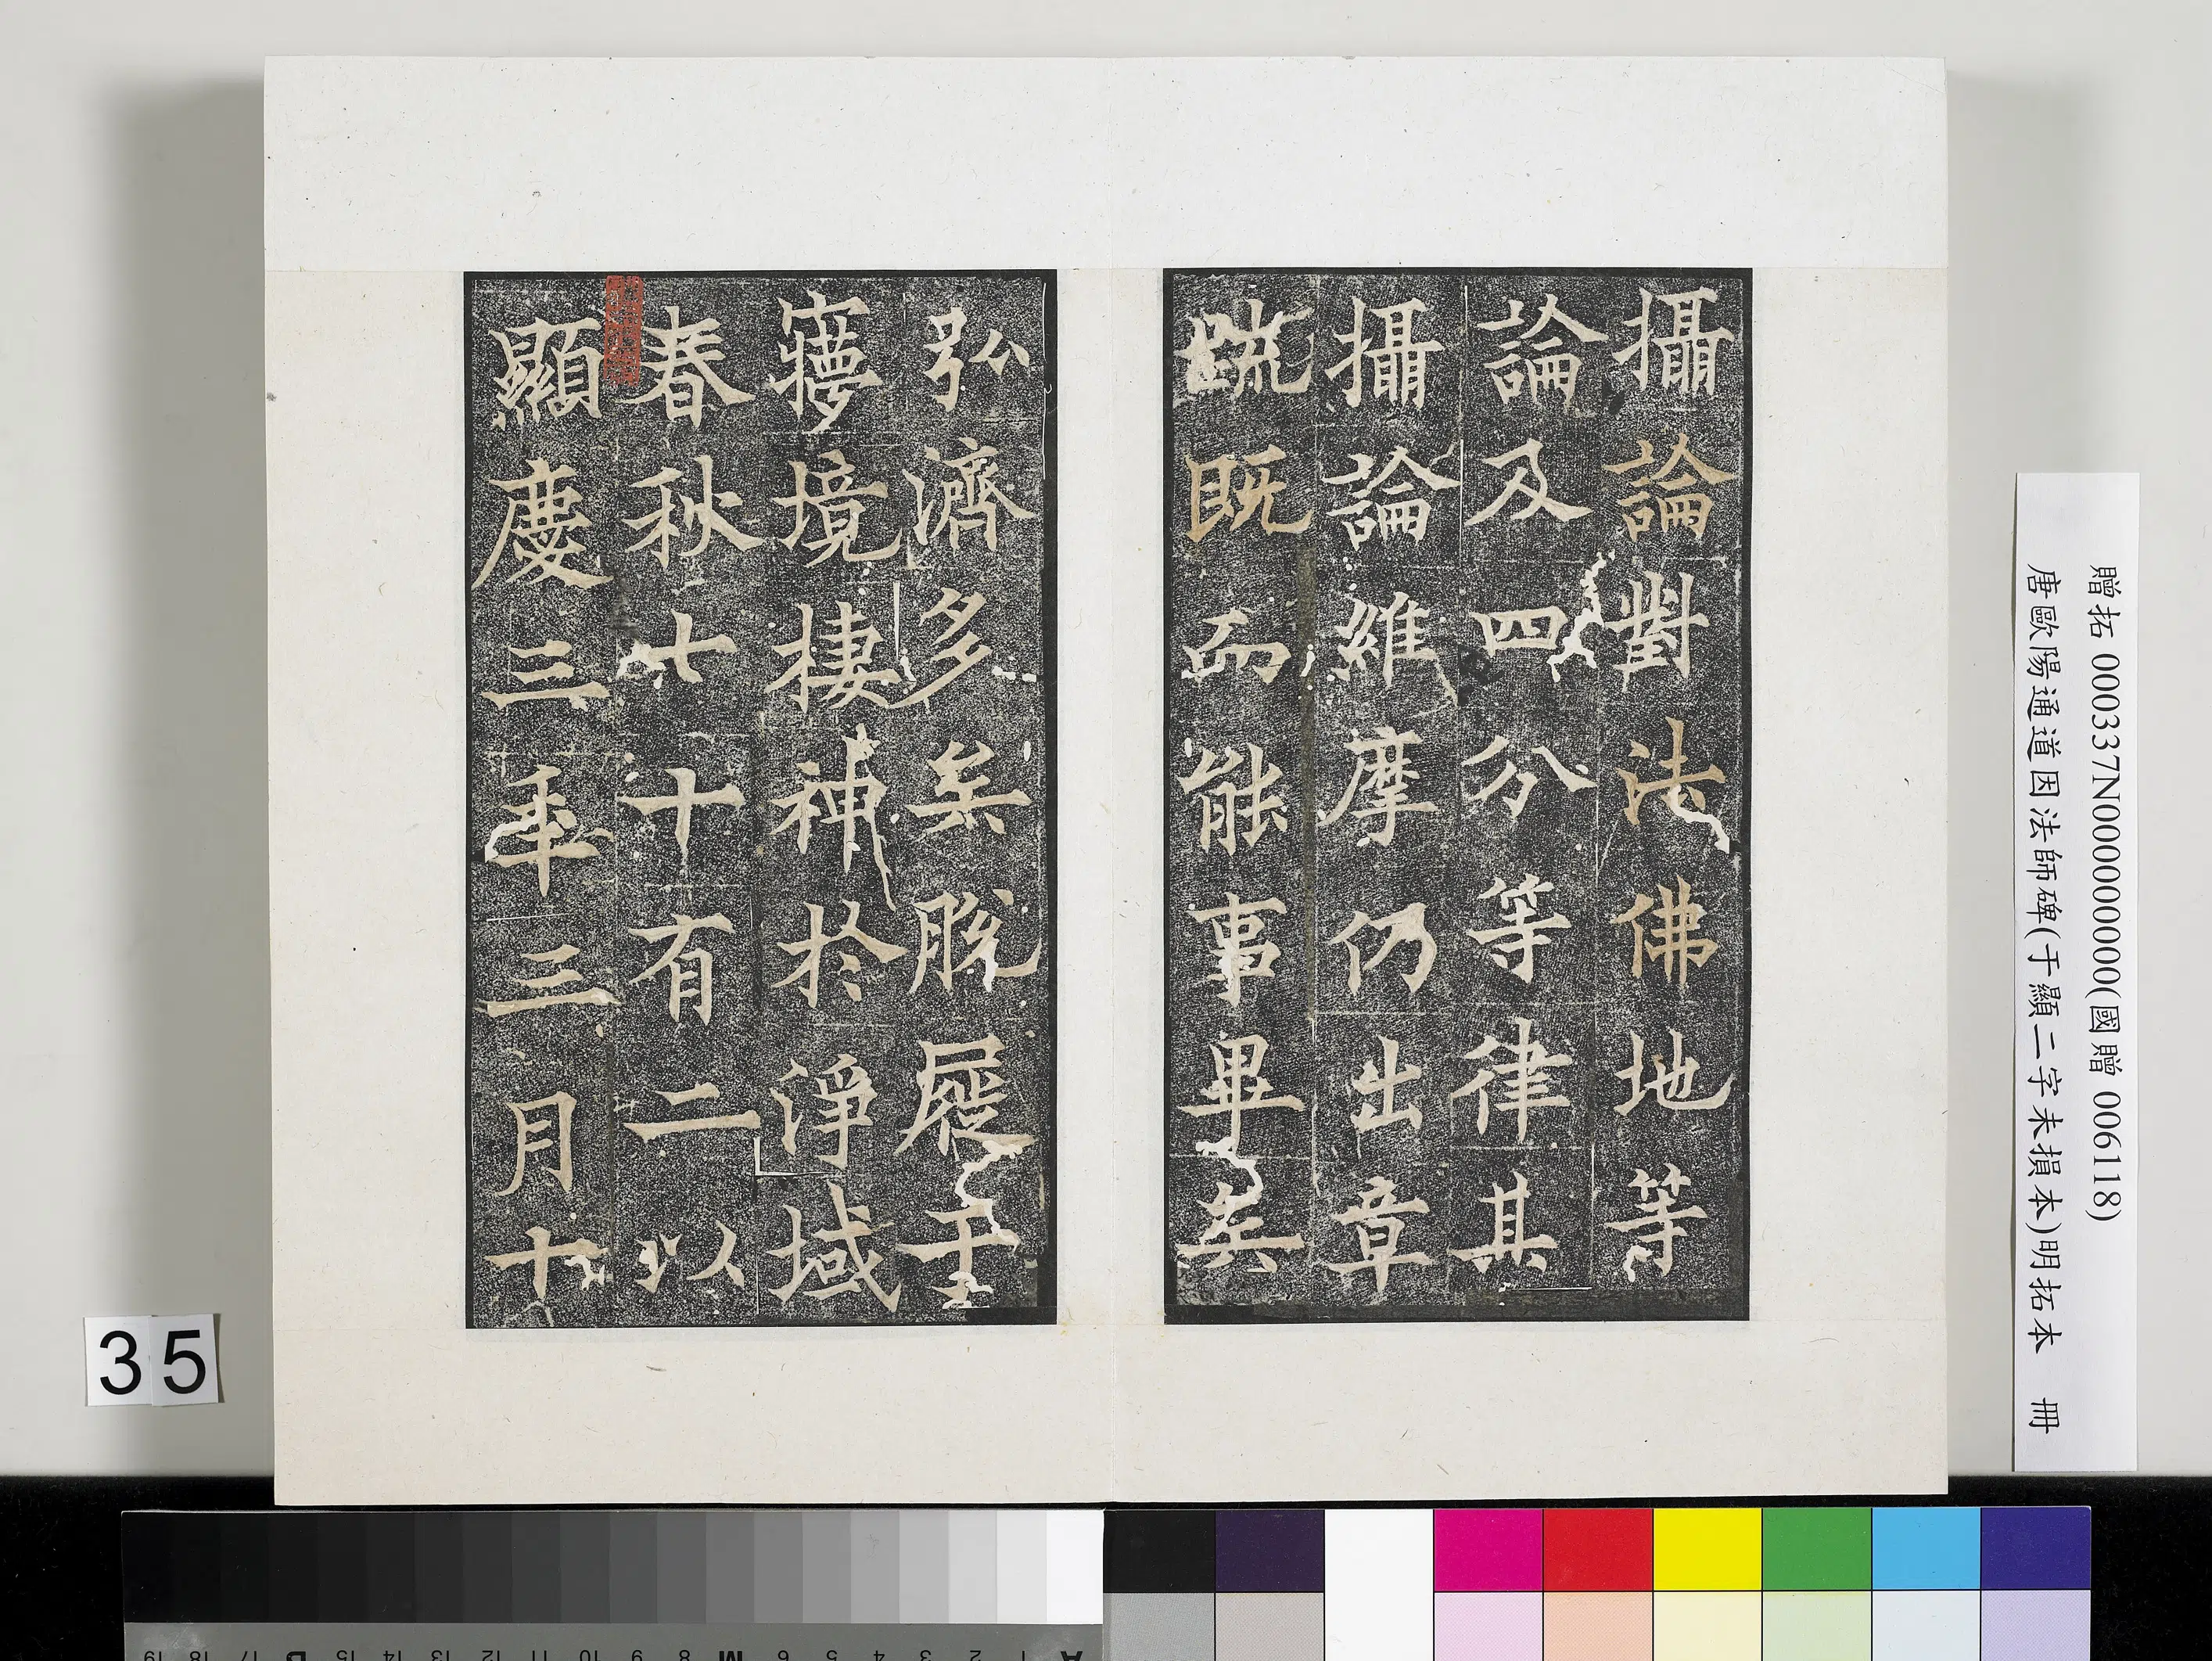 攝論對法佛地等
論及四分等律其
攝論維摩仍出章
䟽既而能事畢矣
弘濟多矣脫屣于
寢境棲神於淨域
春秋七十有二以
顯慶三年三月十
贈拓 000337N000000000(國贈 006118)
唐歐陽通道因法師碑(于顯二字未損本)明拓本 冊
35
A 1 2 3 4 5 6 M 8 9 10 11 12 13 14 15 B 17 18 19